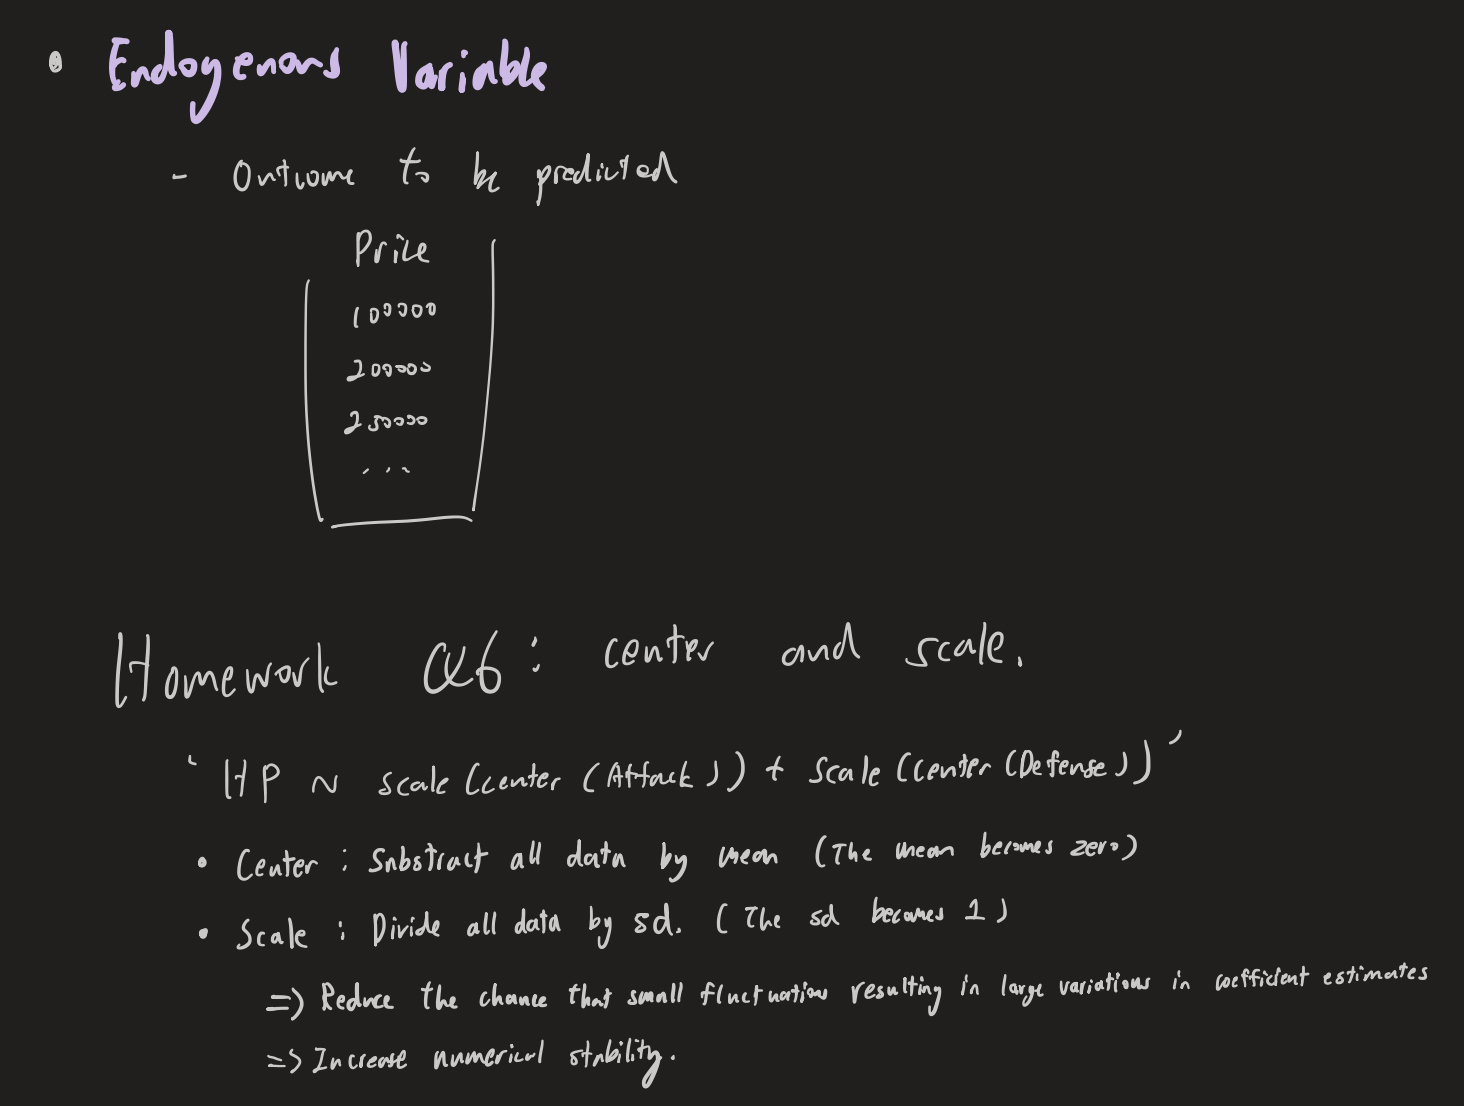 • Endogenous Variable
- Outcome to be predicted
Price
100000
200000
250000
...
Homework Q6: center and scale.
'HP ~ scale(center(Attack)) + scale(center(Defense))'
• Center : Substract all data by mean (The mean becomes zero)
• Scale : Divide all data by sd. (The sd becomes 1)
=> Reduce the chance that small fluctuations resulting in large variations in coefficient estimates
=> Increase numerical stability.